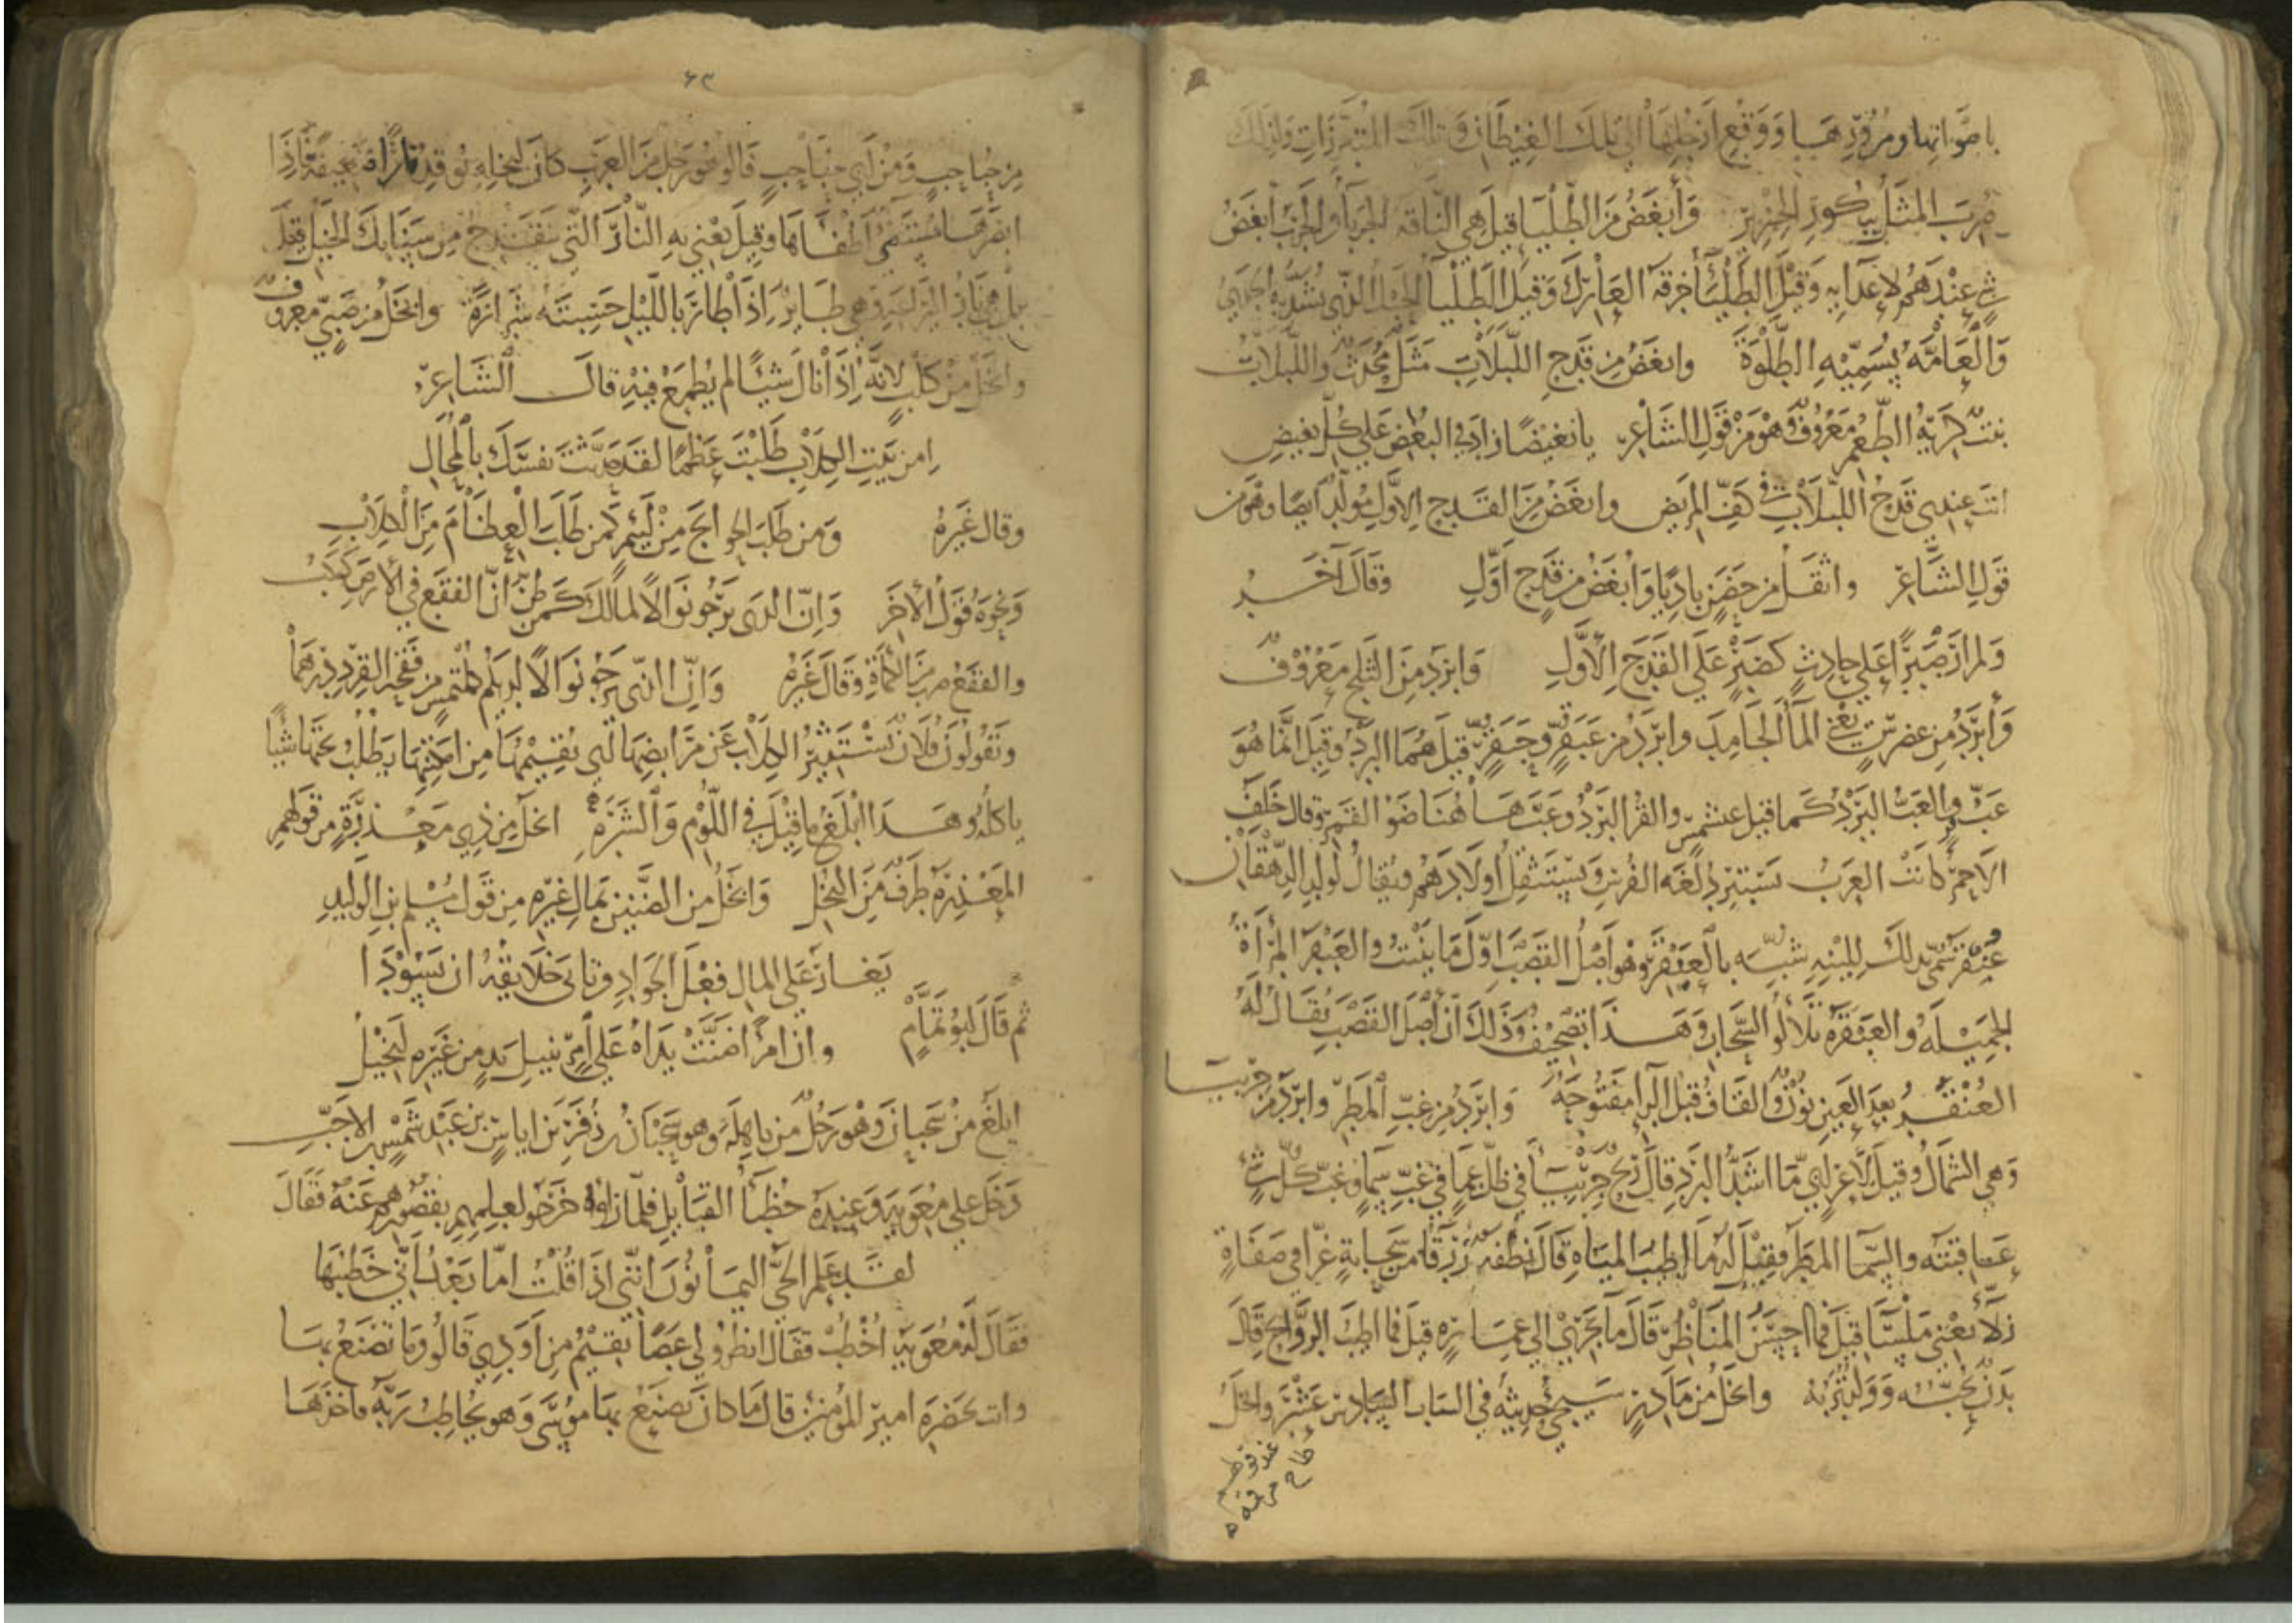 باصواتها ومرورها ووقع ارجلها الى تلك الغيطان وتلك المتبرزات ولذلك
ضرب المثل ببكور الخنزير وأبغض من الطلياء قيل هي الناقة الجرباء والجرب أبغض
شئ عندهم لاعدايه وقيل الطلياء خرقة العارك وقيل الطليا الحبل الذي تشد به الجدي
والعامة يسميه الطلوة وابغض من قدح اللبلاب مثل محدث واللبلاب
نبت كريه الطعم معروف وهو من قول الشاعر يا بغيضا زاد في البغض على كل بغيض
انت عندي قدح اللبلاب في كف المريض وابغض من القدح الاول مولد ايضا وهو من
قول الشاعر واثقل من حضن باديا وأبغض من قدح اول وقال آخر
ولم ار صبرا على حادث كصبر على القدح الاول وابرد من الثلج معروف
وأبرد من عضرس يعني الماء الجامد وابرد من عبقر وحبقر قيل هما البرد وقيل انما هو
عب قر والعب البرد كما قيل عبشمس والقر البرد وعب هاهنا ضو القمر وقال خلف
الاحمر كانت العرب تستبرد لغة الفرس وتستثقل اولادهم فيقال لولد الدهقان
عنقر سمي بذلك للينه شبه بالعنقر وهو اصل القصب اول ما ينبت والعبقر المرأة
الجميلة والعبقرة تلألؤ السحاب وهذا تصحيف وذلك ان اصل القصب يقال له
العنقر بعد العين نون والقاف قبل الراء مفتوحة وابرد من غب المطر وابرد من جربيا
وهي الشمال وقيل لاعرابي ما اشد البرد قال ريح جربياء في ظل عماء في غب سماء وغب كل شئ
عاقبته والسما المطر وقيل له ما اطيب المياه قال نطفة زرقا من سحابة غرا في صفاة
زلا يعني ملسا قيل فما احسن المناظر قال ما يجري الى عمارة قيل فما اطيب الروايح قال
بدن تحبه وولد تربه وابخل من مادر سيجئ حديثه في الباب السادس عشر وابخل
٦٣
من حباحب ومن ابي حباحب قالوا هو رجل من العرب كان لبخله يوقد نارا ضعيفة فاذا
ابصرها مستضئ اطفاها وقيل يعني به النار التي تنقدح من سنابك الخيل وقيل
بل هي نار اليراعة وهي طاير اذا طار بالليل حسبته شرارة وابخل من صبي معروف
وابخل من كلب لانه اذا نال شيئا لم يطمع فيه قال الشاعر
امن بيت الكلاب طلبت عظما لقد حدثت نفسك بالمحال
وقال غيره ومن طلب الحوائج من لئيم كمن طلب العظام من الكلاب
ونحوه قول الاخر وان الذي يرجو نوالا لمالك كمن ظن ان الفقع في الارض كوكب
والفقع ضرب من الكمأة وقال غيره وان الذي يرجو نوالا لديكم كملتمس من فقحة القرد درهما
وتقولون فلان يستثير الكلاب عن مرابضها اي يقيمها من امكنتها يطلب تحتها شيئا
ياكله وهذا ابلغ ما قيل في اللؤم والشره ابخل من ذي معذرة من قولهم
المعذرة طرف من البخل وابخل من الضنين بمال غيره من قول مسلم بن الوليد
يغار على المال فعل الجواد وتابى خلايقه ان يسودا
ثم قال ابو تمام وان امرأ ضنت يداه على امرئ بنيل يد من غيره لبخيل
ابلغ من سحبان وهو رجل من باهلة وهو سحبان بن زفر بن اياس بن عبد شمس بن الاجب
دخل على معوية وعنده خطبا القبايل فلما راوه خرجو لعلمهم بقصورهم عنه فقال
لقد علم الحي اليمانون انني اذا قلت اما بعد اني خطيبها
فقال له معوية اخطب فقال انظرو لي عصا تقيم من اودي قالو وما تصنع بها
وانت بحضرة امير المؤمنين قال ما كان يصنع بها موسى وهو يخاطب ربه فاخذها